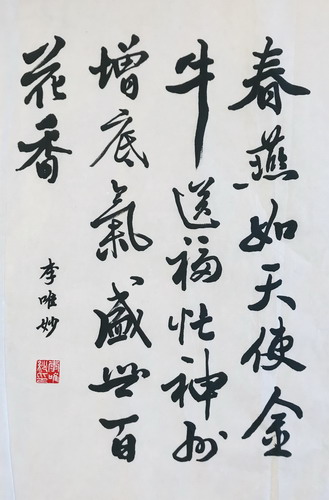 春燕如天使金
牛送福忙神州
增底氣盛世百
花香
李唯妙